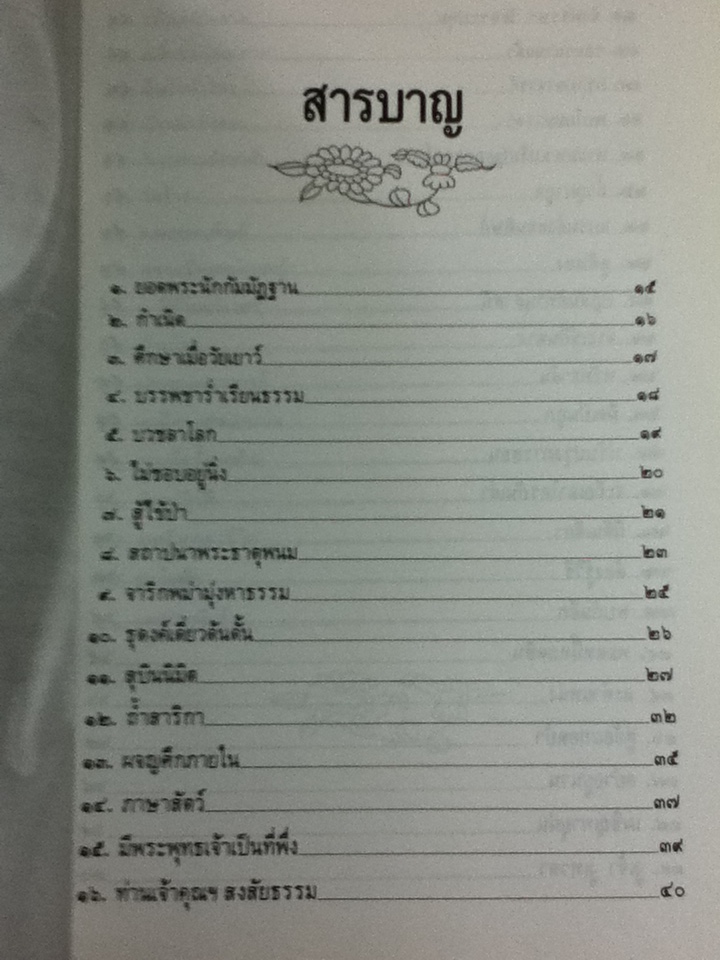 สารบาญ
๑. ยอดพระนักกัมมัฏฐาน ๑๕
๒. กำเนิด ๑๖
๓. ศึกษาเมื่อวัยเยาว์ ๑๗
๔. บรรพชาร่ำเรียนธรรม ๑๘
๕. บวชลาโลก ๑๙
๖. ไม่ชอบอยู่นิ่ง ๒๐
๗. สู้ไข้ป่า ๒๑
๘. สถาปนาพระธาตุพนม ๒๓
๙. จาริกพม่ามุ่งหาธรรม ๒๕
๑๐. ธุดงค์เดี่ยวดันดั้น ๒๖
๑๑. สุบินนิมิต ๒๗
๑๒. ถ้ำสาริกา ๓๒
๑๓. ผจญศึกภายใน ๓๕
๑๔. ภาษาสัตว์ ๓๗
๑๕. มีพระพุทธเจ้าเป็นที่พึ่ง ๓๙
๑๖. ท่านเจ้าคุณฯ สงสัยธรรม ๔๐